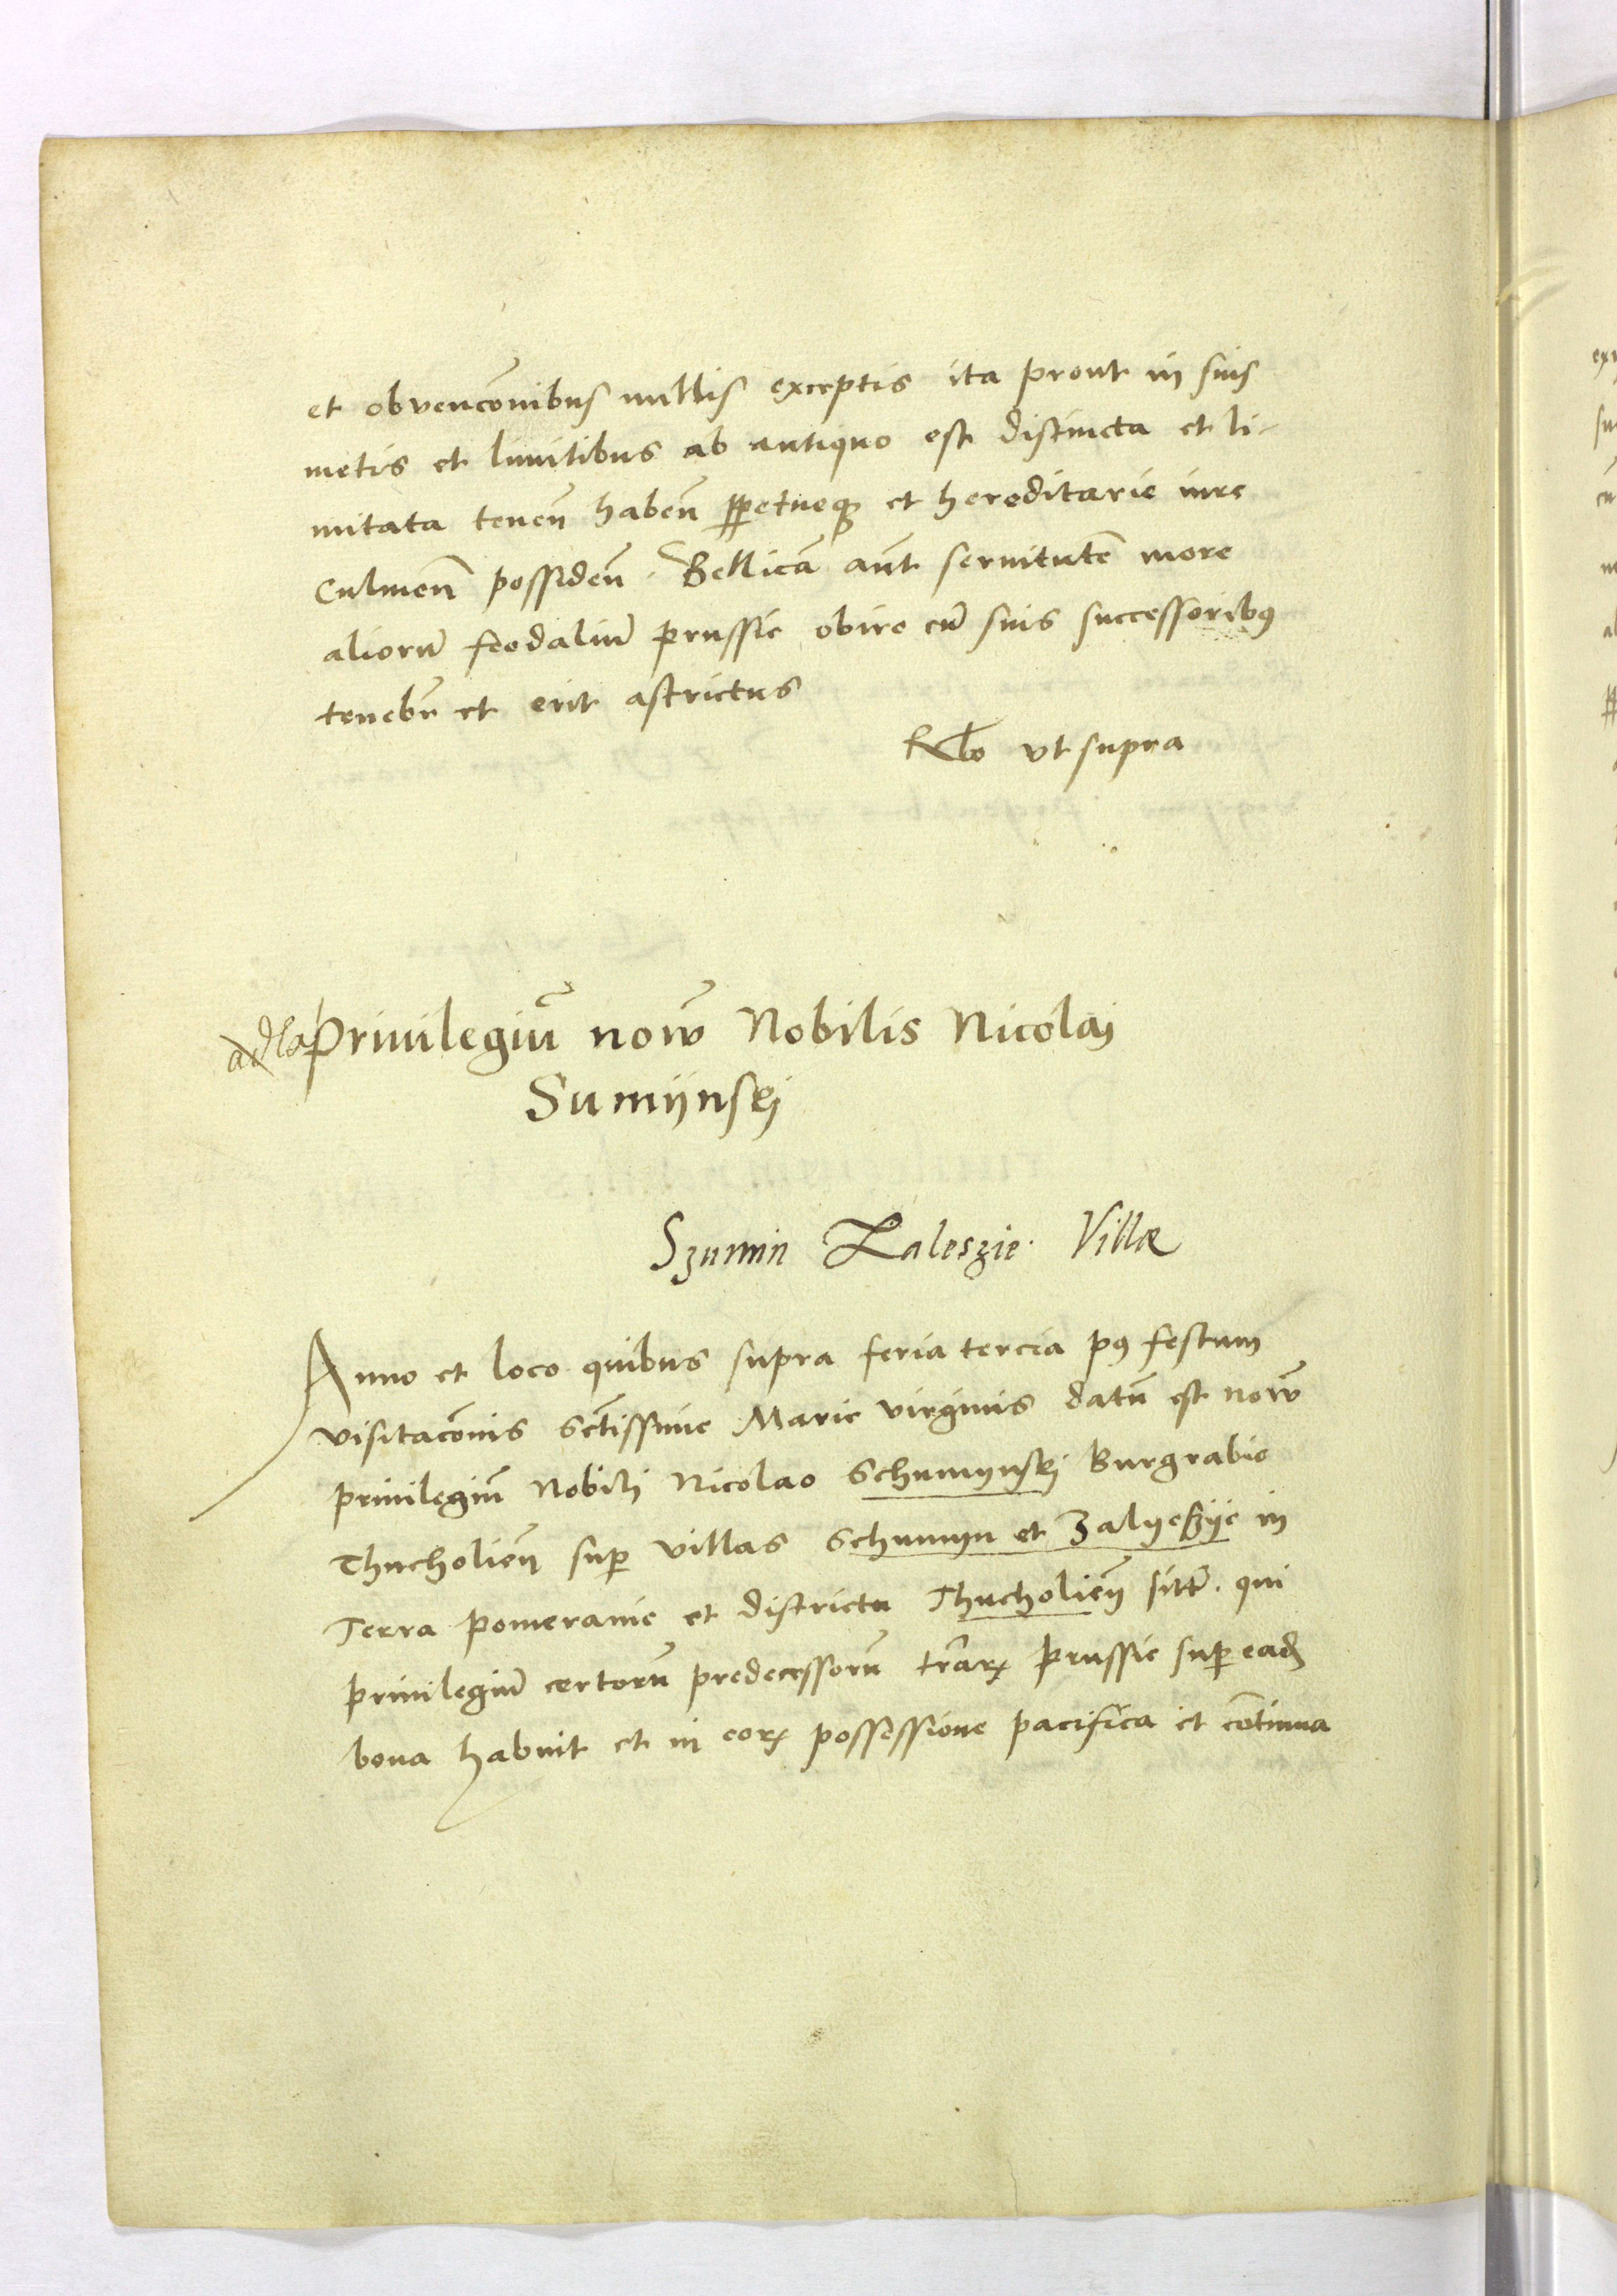 et obvencōnibus nullis exceptis ita prout in suis
metis et limitibus ab antiquo est distincta et li-
mitata teneñ habeñ ꝑpetueqꝫ et hereditarie iure
Culmeñ possideñ. Bellicā aūt seruitutē more
aliorū feodaliū prussie obire cū suis successoribꝰ
tenebr̄ et erit astrictus
Rlo vt supra
Priuilegiū nowͫ Nobilis Nicolaj
Sumijnskj
Szumin Zaleszie. Villæ
Anno et loco quibus supra feria tercia pꝰ festum
visitacōnis Sctīssime Marie virginis datū est nowͫ
priuilegiū Nobilj Nicolao Schumynskj Burgrabio
Thucholieñ suꝑ villas Schumyn et Zalyeszye in
Terra pomeranie et districtu Thucholieñ sitt̄. qui
priuilegiū certorū predecessorū trārꝝ prussie suꝑ eadē
bona habuit et in eorꝝ possessione pacifica et cōtinua